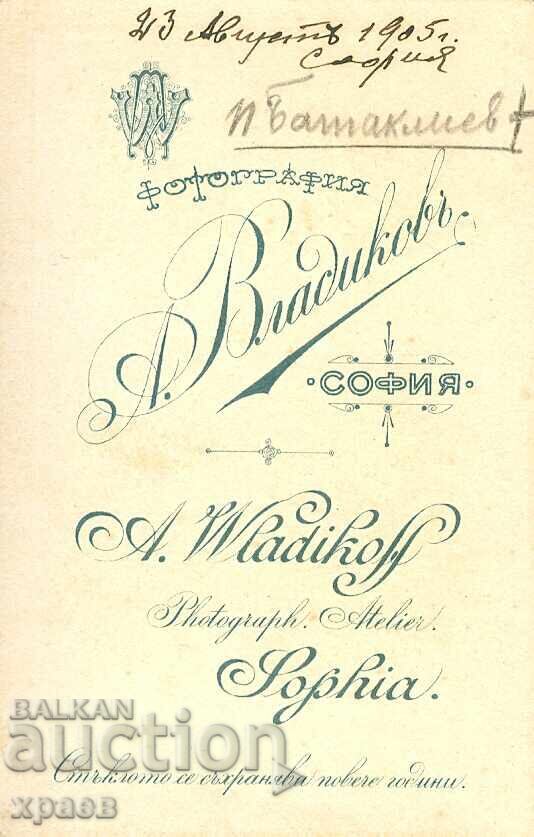 23 Августъ 1905 г.
София
П Батаклиев +
ФОТОГРАФИЯ
А. Владиковъ
СОФИЯ
A. Wladikoff
Photograph. Atelier.
Sophia.
Стъклото се съхранява повече години.
BALKAN
auction
храев